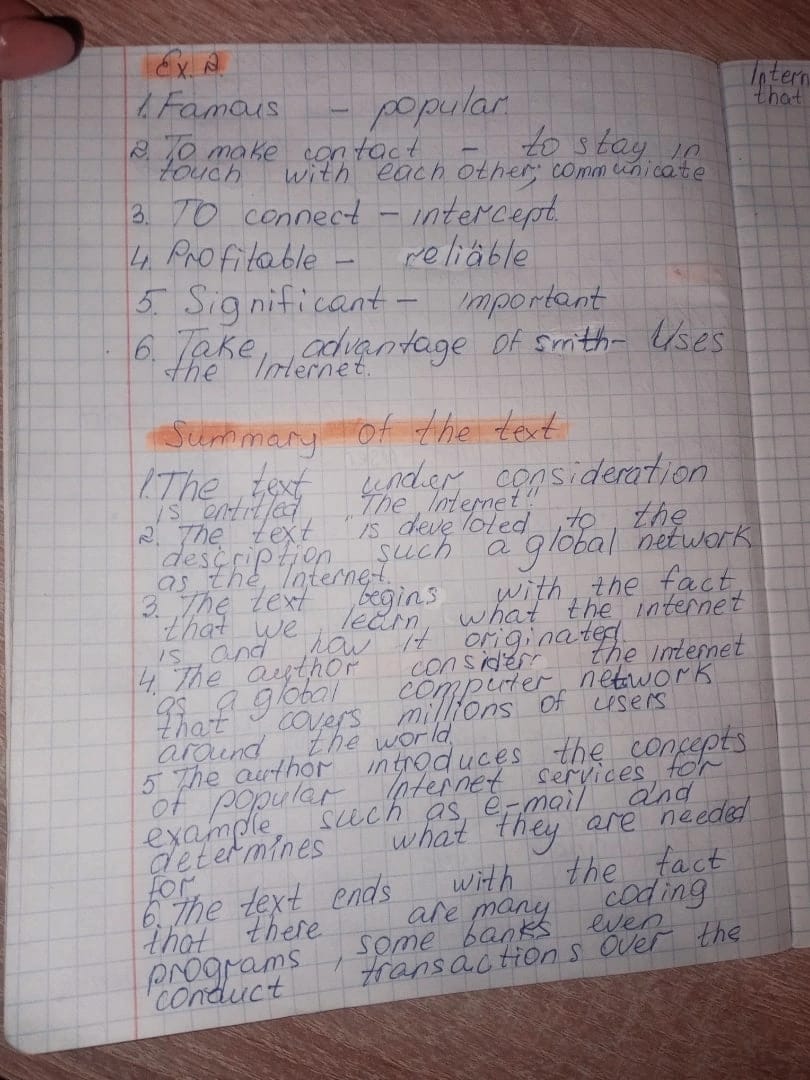 Ex. 2.
1. Famous - popular.
2. To make contact - to stay in
touch with each other; communicate
3. TO connect - intercept.
4. Profitable - reliable
5. Significant - important
6. Take advantage of smth - Uses
the Internet.
Summary of the text
1. The text under consideration
is entitled "The Internet".
2. The text is develoted to the
description such a global network
as the Internet.
3. The text begins with the fact
that we learn what the internet
is and how it originated.
4. The author consider the internet
as a global computer network
that covers millions of users
around the world.
5 The author introduces the concepts
of popular Internet services for
example, such as e-mail and
determines what they are needed
for.
6. The text ends with the fact
that there are many coding
programs, some banks even
conduct transactions over the
Intern
that